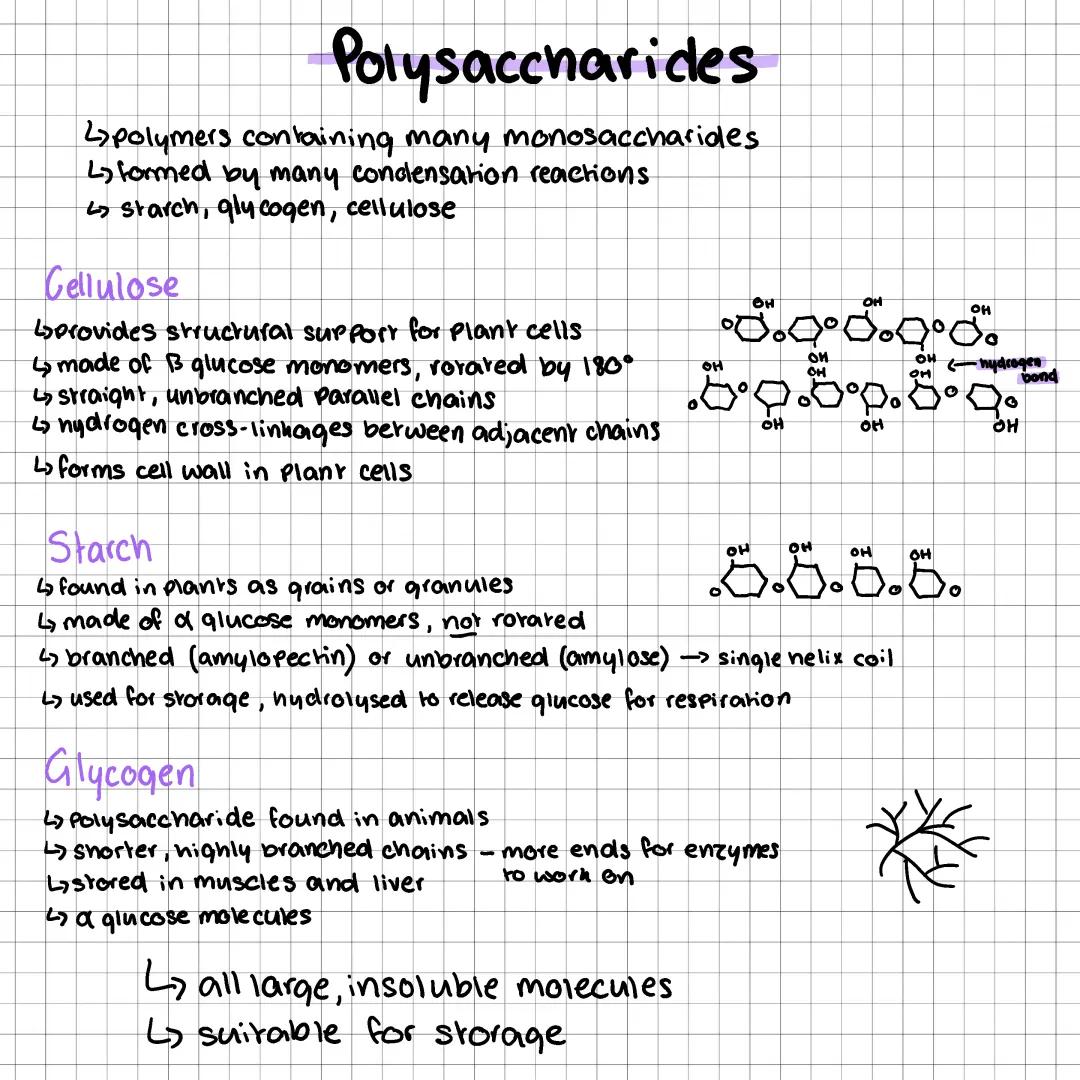 Polysaccharides
↳ polymers containing many monosaccharides
↳ formed by many condensation reactions
↳ starch, glycogen, cellulose
Cellulose
↳ provides structural support for plant cells
↳ made of β glucose monomers, rotated by 180°
↳ straight, unbranched parallel chains
↳ hydrogen cross-linkages between adjacent chains
↳ forms cell wall in plant cells
OH OH OH
O O O O O O
OH OH ← hydrogen bond
OH OH OH
O O O O O O
OH OH OH
Starch
↳ found in plants as grains or granules
↳ made of α glucose monomers, not rotated
↳ branched (amylopectin) or unbranched (amylose) → single helix coil
↳ used for storage, hydrolysed to release glucose for respiration
OH OH OH OH
O O O O O
Glycogen
↳ polysaccharide found in animals
↳ shorter, highly branched chains – more ends for enzymes
to work on
↳ stored in muscles and liver
↳ α glucose molecules
↳ all large, insoluble molecules
↳ suitable for storage